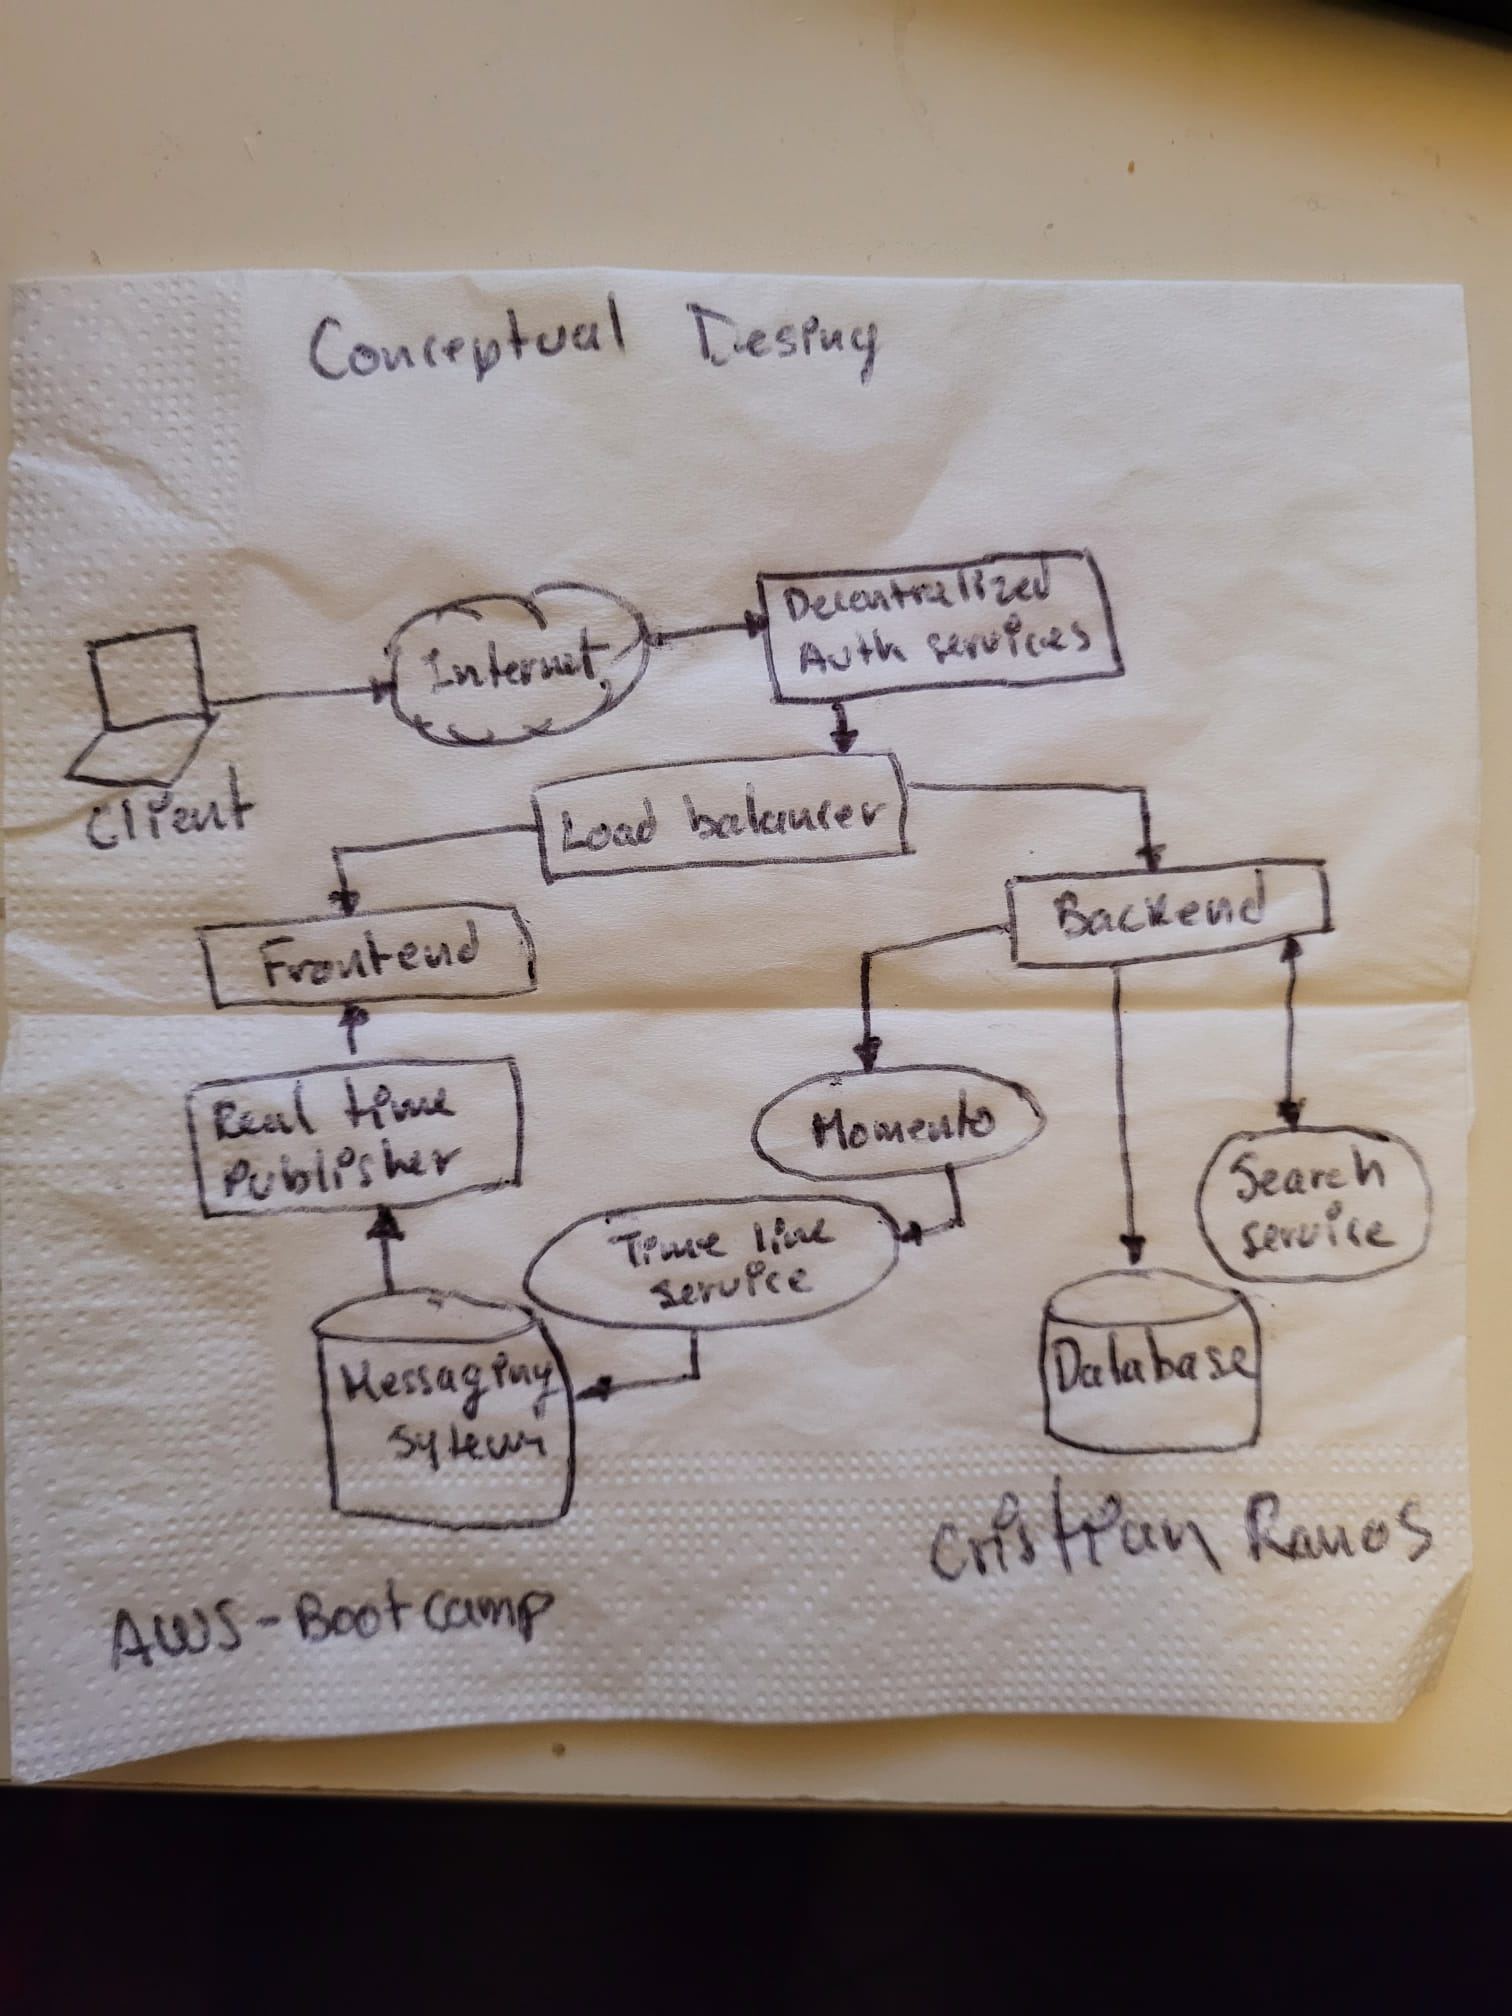 Conceptual Desing
Internet
Decentralized
Auth services
Client
Load balancer
Frontend
Backend
Real time
Publisher
Momento
Search
service
Time line
service
Messaging
System
Database
Cristian Ramos
AWS-Bootcamp